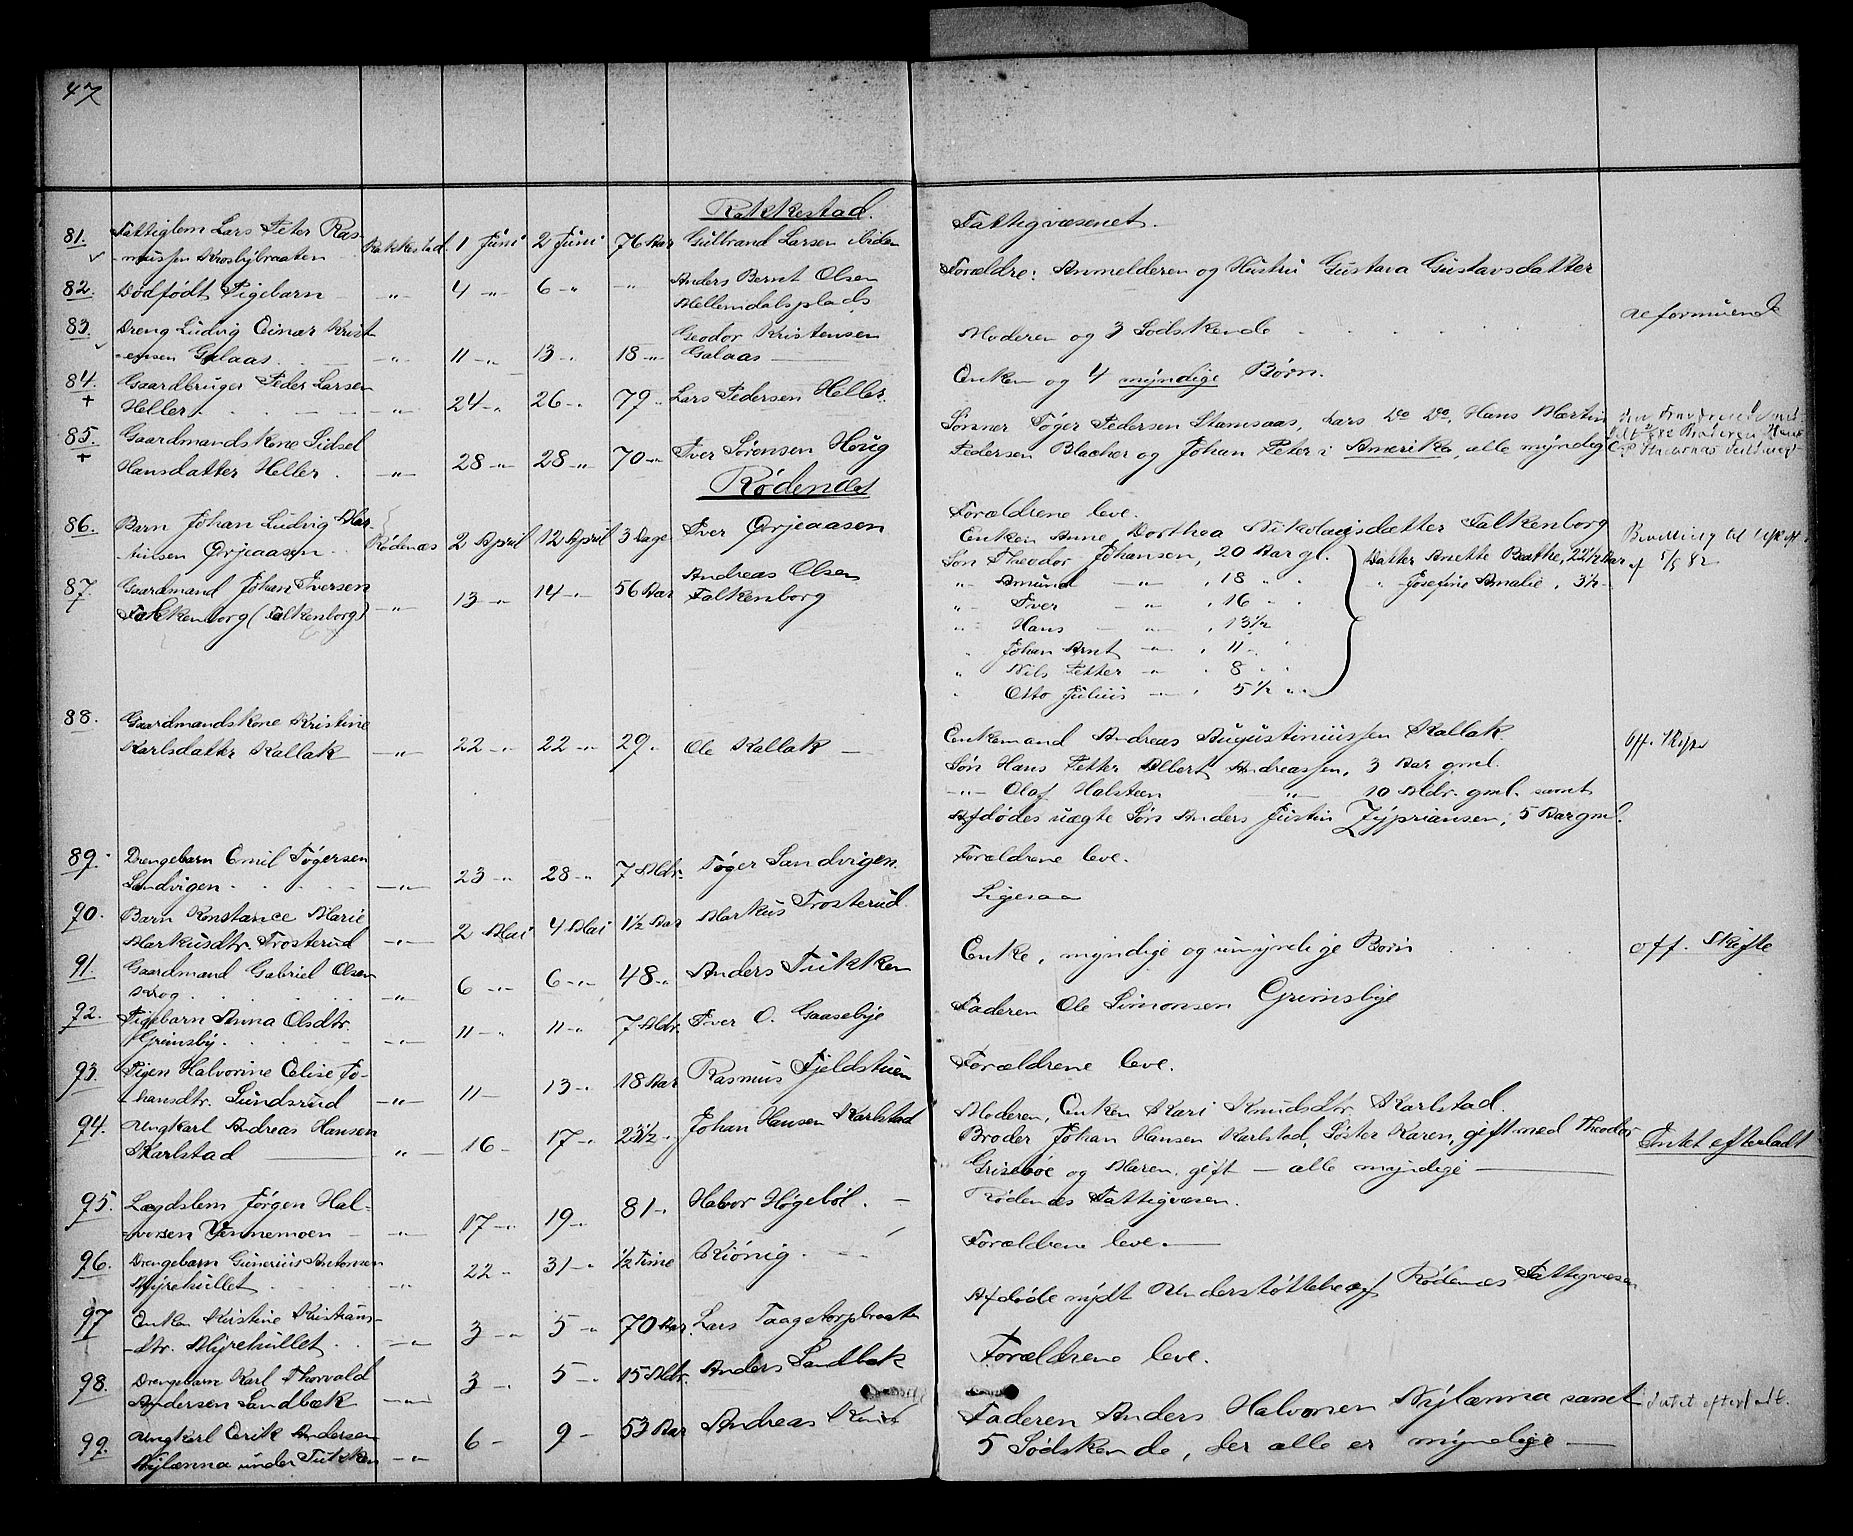 47
Rakkestad.
81. Fattiglem Lars Peter Ras- Rakkestad. 1 Juni 2 Juni 76 Aar Gulbrand Larsen ibiden Fattigvæsenet.
mussen Krosbybraaten
82. Dødfødt Pigebarn -"- 4 -"- 6 -"- -"- Anders Bernt Olsen Forældre: Anmelderen og Hustru Gustava Gustavsdatter
Mellemdalsplads
83. Dreng Ludvig Einar Krist- Geodor Kristensen Moderen og 3 Sødskende uformuende
ensen Galaas -"- 11 -"- 13 -"- 18 -"- Galaas
84. Gaardbruger Peder Larsen Enken og 4 myndige Børn.
+ Heller. -"- 24 -"- 26 -"- 79 " Lars Pedersen Heller.
85. Gaardmandskone Sidsel Sønner Tøger Pedersen Stamsaas, Lars Do Do, Hans Martin
+ Hansdatter Heller. -"- 28 -"- 28 -"- 70 -"- Iver Sørensen Houg Pedersen Blacher og Johan Peter i Amerika, alle myndig
Rødenæs
86. Barn Johan Ludvig Mar- Rødenæs 2 April 12 April 3 Dage Iver Ørjeaasen Forældrene leve.
tinsen Ørjeaasen
Enken Anne Dorthea Nikolaysdatter Falkenborg Bevilling til
87. Gaardmand Johan Iversen -"- 13 -"- 14 -"- 56 Aar Andreas Olsen Søn Theodor Johansen, 20 Aar gl. Datter Anette Bathe, 22 1/2 Aar af 5/5 82
Falkenborg (Falkenborg) Falkenborg -"- Amund -"- , 18 " " " Josefine Amalie, 3 1/2 -
-"- Iver -"- , 16 " "
-"- Hans -"- , 13 1/2
" Johan Arnt -"- , 11 -
" Nils Petter -"- , 8 "
" Otto Julius -"- , 5 1/2 " "
88. Gaardmandskone Kristine Enkemand Andreas Augustinussen Kallak Off. Skifte
Karlsdatter Kallak -"- 22 -"- 22 -"- 29 " Ole Kallak
Søn Hans Petter Albert Andreassen, 3 Aar gml.
-"- Olaf Halsten -"- 10 Mdr. gml. samt
Afdødes uægte Søn Anders Justin Zypriansen, 5 Aar gml.
89. Drengebarn Emil Tøgersen Forældrene leve.
Sandvigen. -"- 23 -"- 28 -"- 7 Mdr. Tøger Sandvigen.
90. Barn Konstance Marie Ligesaa
Markusdtr. Trosterud -"- 2 Mai 4 Mai 1 1/2 Aar Markus Trosterud.
91. Gaardmand Gabriel Olsen Enke, myndige og umyndige Børn off. Skifte
Krog -"- 6 -"- 6 -"- 48 -"- Anders Tukken
92. Pigebarn Anna Olsdtr. Faderen Ole Simonsen Grimsbye
Grimsby. -"- 11 -"- 11 -"- 7 Mdr. Iver O. Gaasebye
93. Pigen Halvorine Elise Jo- Forældrene leve.
hansdtr. Sundsrud -"- 11 - 13 -"- 18 Aar Rasmus Fjeldstuen
94. Ungkarl Andreas Hansen Moderen, Enken Kari Knudsdtr. Karlstad.
Karlstad -"- 16 - 17 -"- 23 1/2 " Johan Hansen Karlstad Broder Johan Hansen Karlstad, Søster Karen, gift med Theodor Intet efterladt
og Maren, gift - alle myndige
95. Lægdslem Jørgen Hal- Rødenæs Fattigvæsen.
vorsen Vennemoen -"- 17 -"- 19 -"- 81 -"- Habor Høgebøl.
96. Drengebarn Gunerius Antonsen Forældrene leve.
Myrehullet -"- 22 -"- 31 -"- 1/2 Time Kiönig.
97 Enken Kirstine Kristians- Afdøde nydt Understøttelse af Rødenæs Fattigvæsen
dtr. Myrehullet. -"- 3 -"- 5 -"- 70 Aar. Lars Taagetorpbraaten
98. Drengebarn Karl Thorvald Forældrene leve.
Andersen Sandbæk -"- 3 -"- 5 -"- 15 Mdr. Anders Sandbæk
99. Ungkarl Erik Andersen Faderen Anders Halvorsen Nylænna samt Intet efterladt.
Nylænna under Tukken -"- 6 - 9 - 53 Aar Andreas 5 Sødskende, der alle er myndige